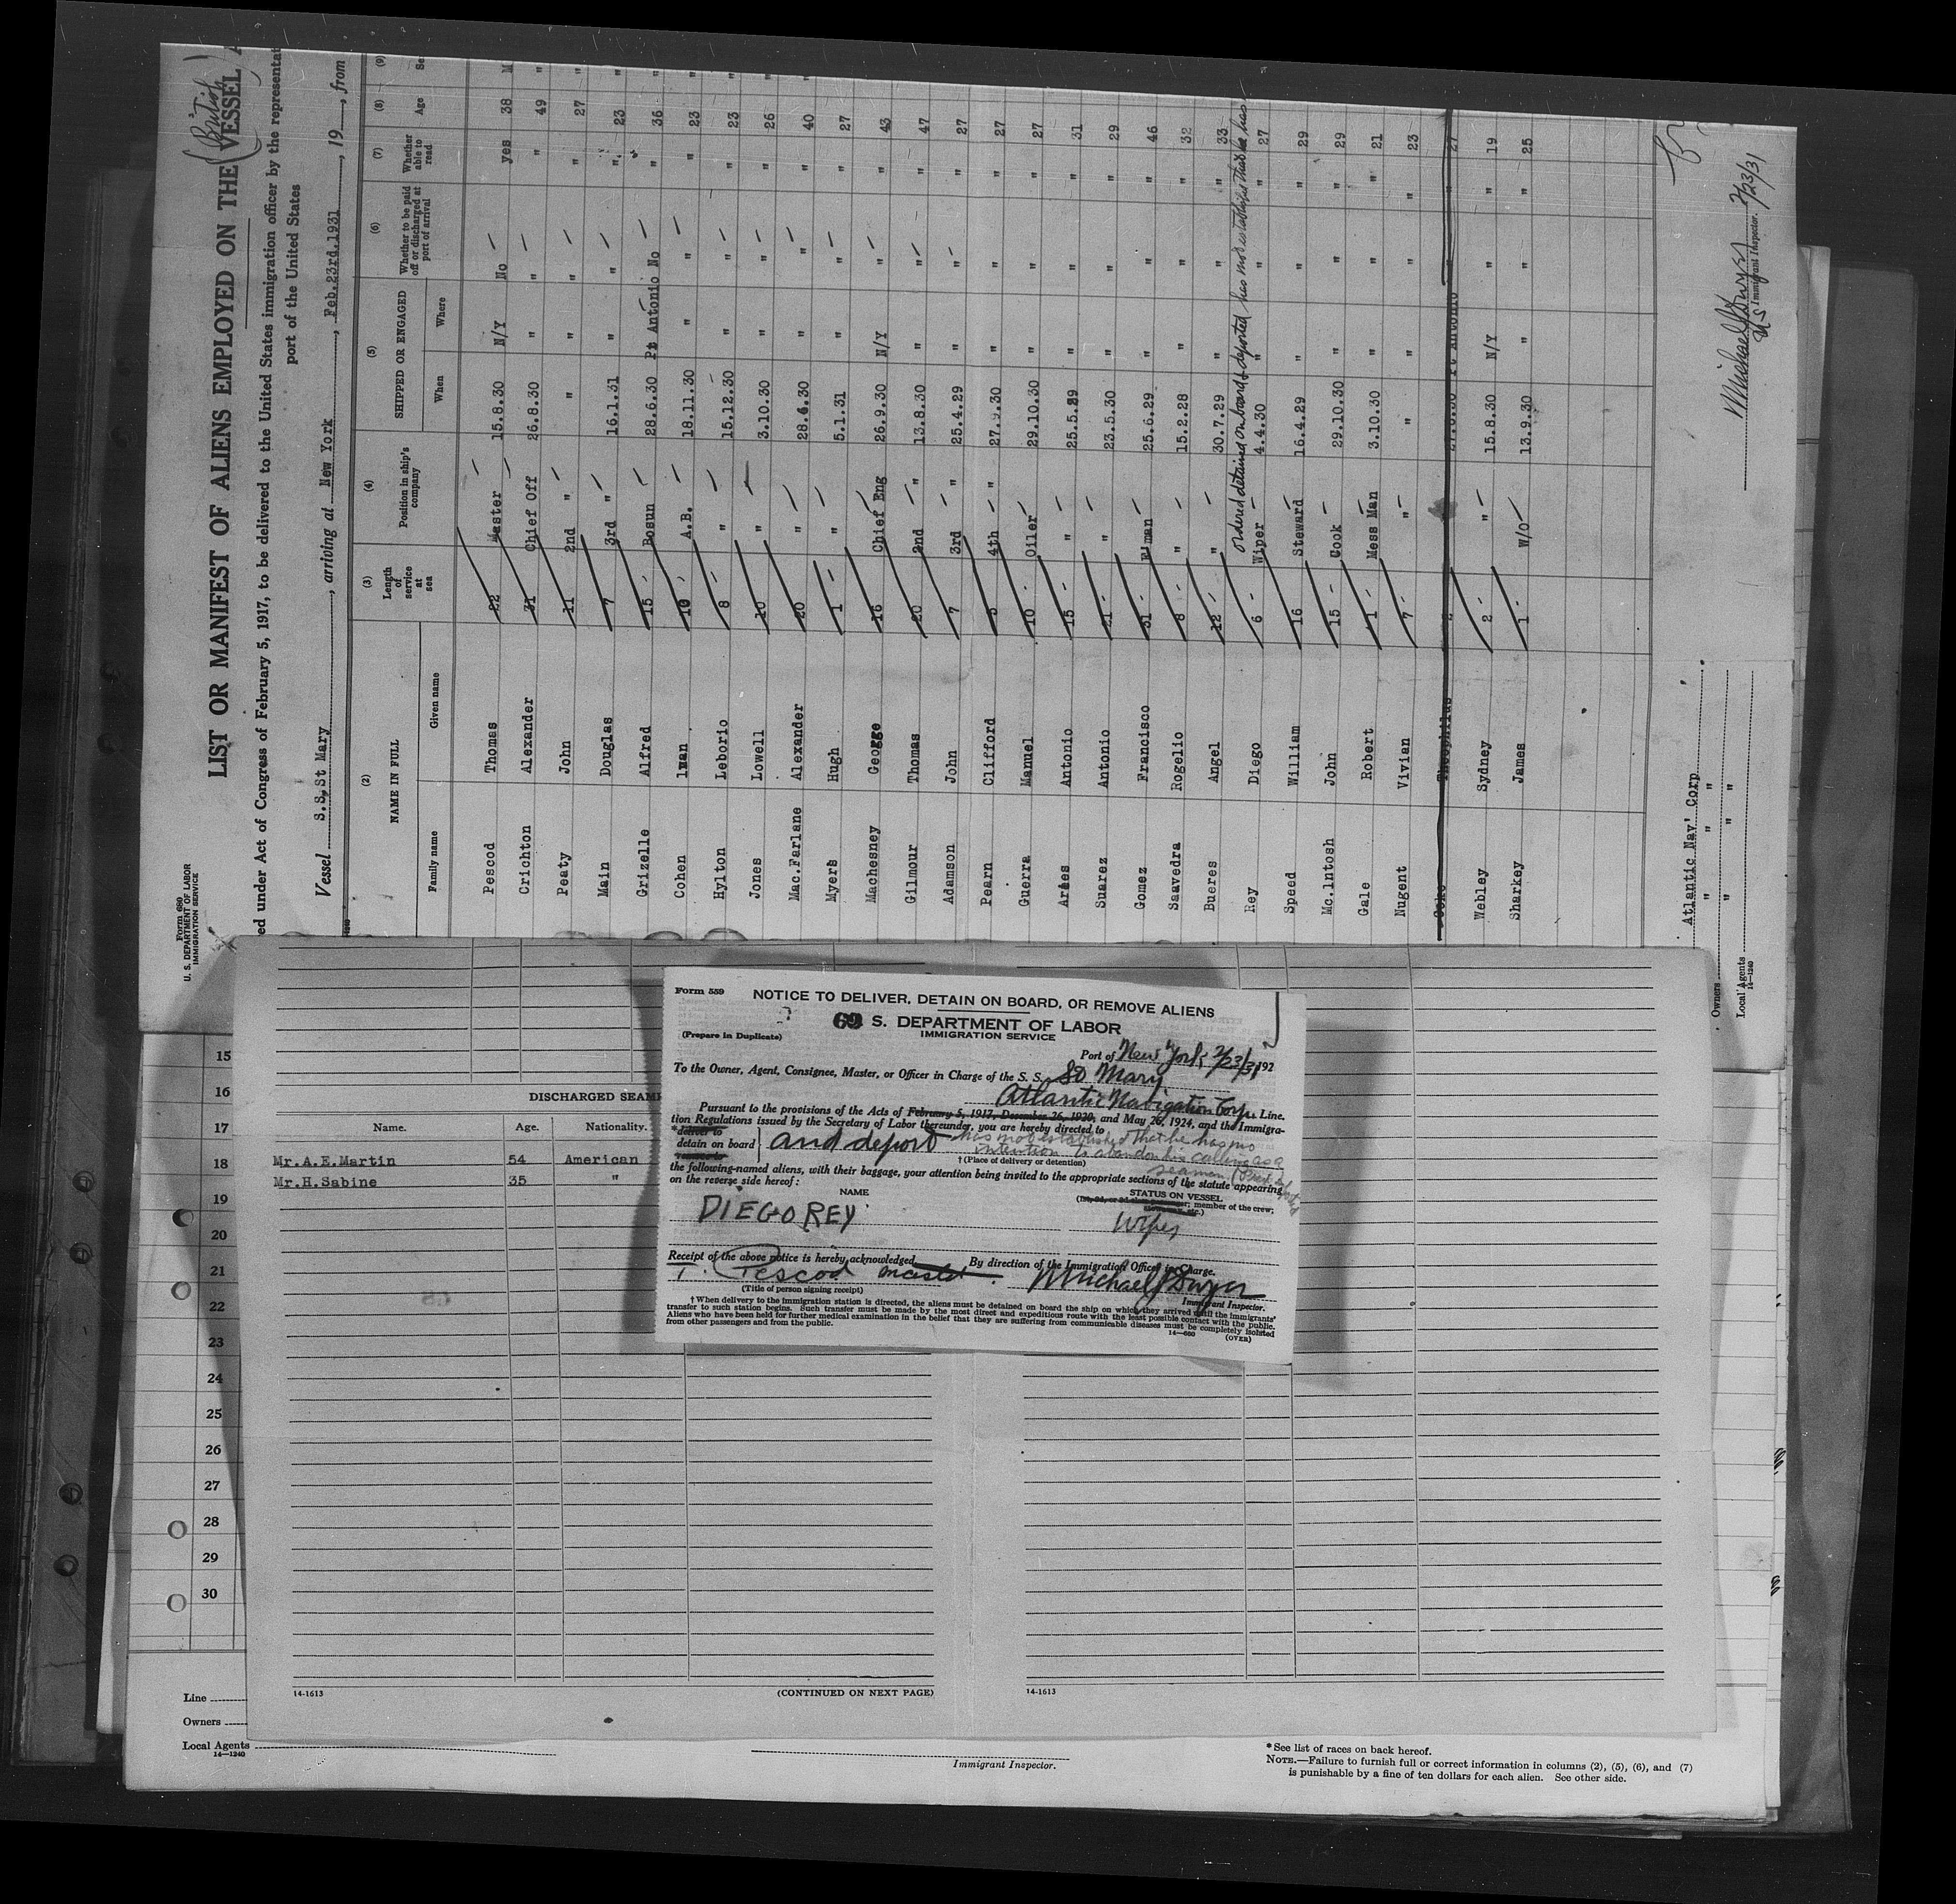 Form 680
U. S. DEPARTMENT OF LABOR
IMMIGRATION SERVICE
LIST OR MANIFEST OF ALIENS EMPLOYED ON THE VESSEL
(British)
ed under Act of Congress of February 5, 1917, to be delivered to the United States immigration officer by the representa
port of the United States
Vessel S.S,St Mary, arriving at New York, Feb.23rd.1931, 19 , from
(2) (3) (4) (5) (6) (7) (8) (9)
NAME IN FULL Length of service at sea Position in ship's company SHIPPED OR ENGAGED Whether to be paid off or discharged at port of arrival Whether able to read Age Se
Family name Given name When Where
Pescod Thomas 22 Master 15.8.30 N/Y No yes 38 M
Crichton Alexander 31 Chief Off 26.8.30 " " " 49 "
Peaty John 11 2nd " " " " " 27 "
Main Douglas 7 3rd " 16.1.31 " " " 23 "
Grizelle Alfred 15 Bosun 28.6.30 Pt Antonio No " 36 "
Cohen 10 A.B. 18.11.30 " " " 23 "
Hylton Leborio 8 " 15.12.30 " " " 23 "
Jones Lowell 10 " 3.10.30 " " " 26 "
Mac.Farlane Alexander 20 " 28.6.30 " " " 40 "
Myers Hugh 1 " 5.1.31 " " " 27
Machesney George 16 Chief Eng 26.9.30 N/Y " " 43
Gilmour Thomas 20 2nd " 13.8.30 " " " 47
Adamson John 7 3rd " 25.4.29 " " " 27
Pearn Clifford 5 4th " 27.9.30 " " " 27
Guerra Manuel 10 Oiler 29.10.30 " " " 27
Antonio 15 " 25.5.29 " " " 31
Suarez Antonio 21 " 23.5.30 " " " 29
Gomez Francisco 31 F'man 25.6.29 " " " 46
Saavedra Rogelio 8 " 15.2.28 " " " 32
Bueres Angel 12 " 30.7.29 " " " 33
ordered detained on board & deported has not established that he has
Rey Diego 6 Wiper 4.4.30 " " " 27
Speed William 16 Steward 16.4.29 " " " 29
Mc.Intosh John 15 Cook 29.10.30 " " " 29
Gale Robert 1 Mess Man 3.10.30 " " " 21
Nugent Vivian 7 " " " " " 23
Theophilus 27
Webley Sydney 2 " 15.8.30 N/Y " " 19
Sharkey James 1 W/O 13.9.30 " " " 25
Atlantic Nav' Corp
Owners " " " "
Local Agents " " " "
14—1240
Michael J Dwyer 2/23/31
US Immigrant Inspector.
15
16
17
18
19
20
21
22
23
24
25
26
27
28
29
30
DISCHARGED SEAM
Name. Age. Nationality.
Mr.A.E.Martin 54 American
Mr.H.Sabine 35 "
Form 559
NOTICE TO DELIVER, DETAIN ON BOARD, OR REMOVE ALIENS
S. DEPARTMENT OF LABOR
IMMIGRATION SERVICE
(Prepare in Duplicate)
Port of New York 2/23/31 192
To the Owner, Agent, Consignee, Master, or Officer in Charge of the S. S. St Mary
Atlantic Navigation Corp. Line.
Pursuant to the provisions of the Acts of February 5, 1917, December 26, 1920, and May 26, 1924, and the Immigra-
tion Regulations issued by the Secretary of Labor thereunder, you are hereby directed to
*deliver to
detain on board } and deport has not established that he has no
intention to abandon his calling as a
seaman
†(Place of delivery or detention)
the following-named aliens, with their baggage, your attention being invited to the appropriate sections of the statute appearing
on the reverse side hereof:
NAME STATUS ON VESSEL
member of the crew;
DIEGO REY Wiper
Receipt of the above notice is hereby acknowledged By direction of the Immigration Officer in Charge.
T. Pescod master Michael J Dwyer
(Title of person signing receipt) Immigrant Inspector.
†When delivery to the immigration station is directed, the aliens must be detained on board the ship on which they arrived until the immigrants'
transfer to such station begins. Such transfer must be made by the most direct and expeditious route with the least possible contact with the public.
Aliens who have been held for further medical examination in the belief that they are suffering from communicable diseases must be completely isolated
from other passengers and from the public.
14—680 (OVER)
14-1613 (CONTINUED ON NEXT PAGE) 14-1613
Line
Owners
Local Agents
14—1240
Immigrant Inspector.
*See list of races on back hereof.
NOTE.—Failure to furnish full or correct information in columns (2), (5), (6), and (7)
is punishable by a fine of ten dollars for each alien. See other side.